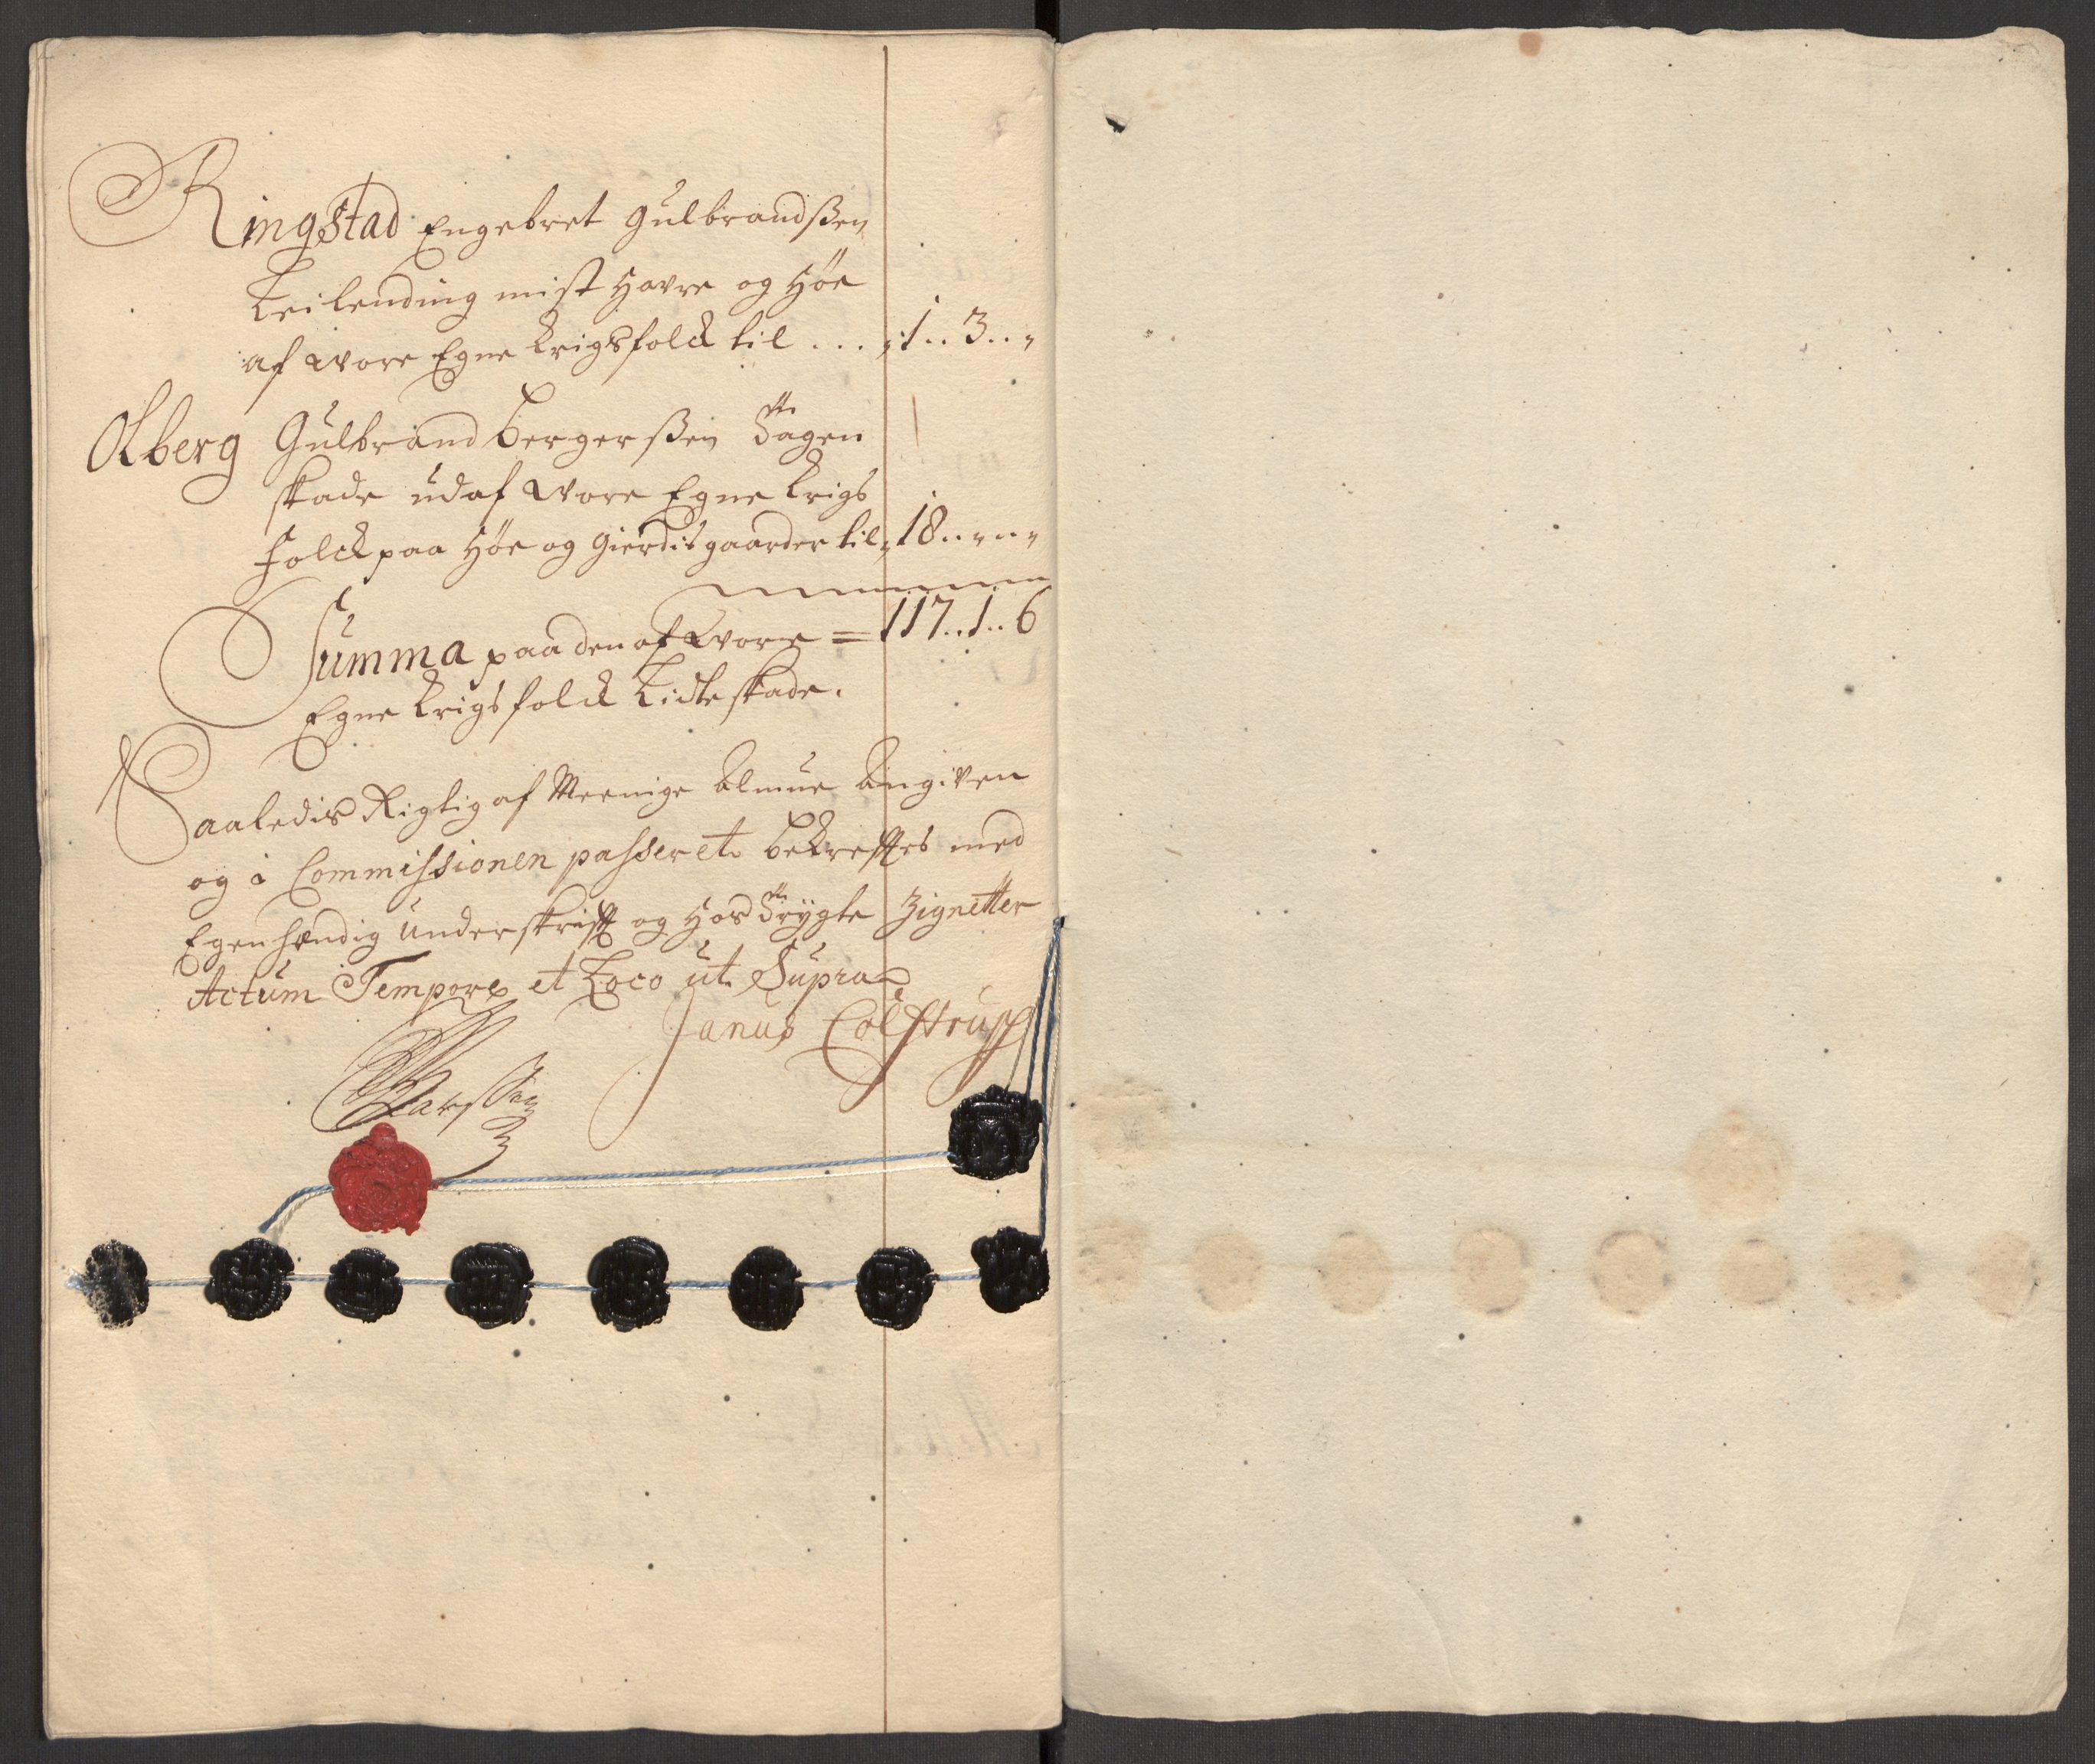 Ringstad Engebret Gulbrandßen
Leilending mist Havre og Høe
af Wore Egne Krigsfolck til ... " 1 .. 3 .. "
Olberg Gulbrand Bergerßen Tagen
skade udaf Wore Egne Krigs
Folck paa Høe og Gierdisgaarder til " 18 .. " .. "
Summa paa den af Wore = 117 .. 1 .. 6
Egne Krigsfolck Lidte skade.
Saaledis Rigtig af Meenige Almue Angiven
og i Commissionen passeret bekrefftes med
Egenhændig Underskrifft og Hos Trygte Zignetter
Actum Tempore et Loco ut Supra
Janus Colstrup
Larssen